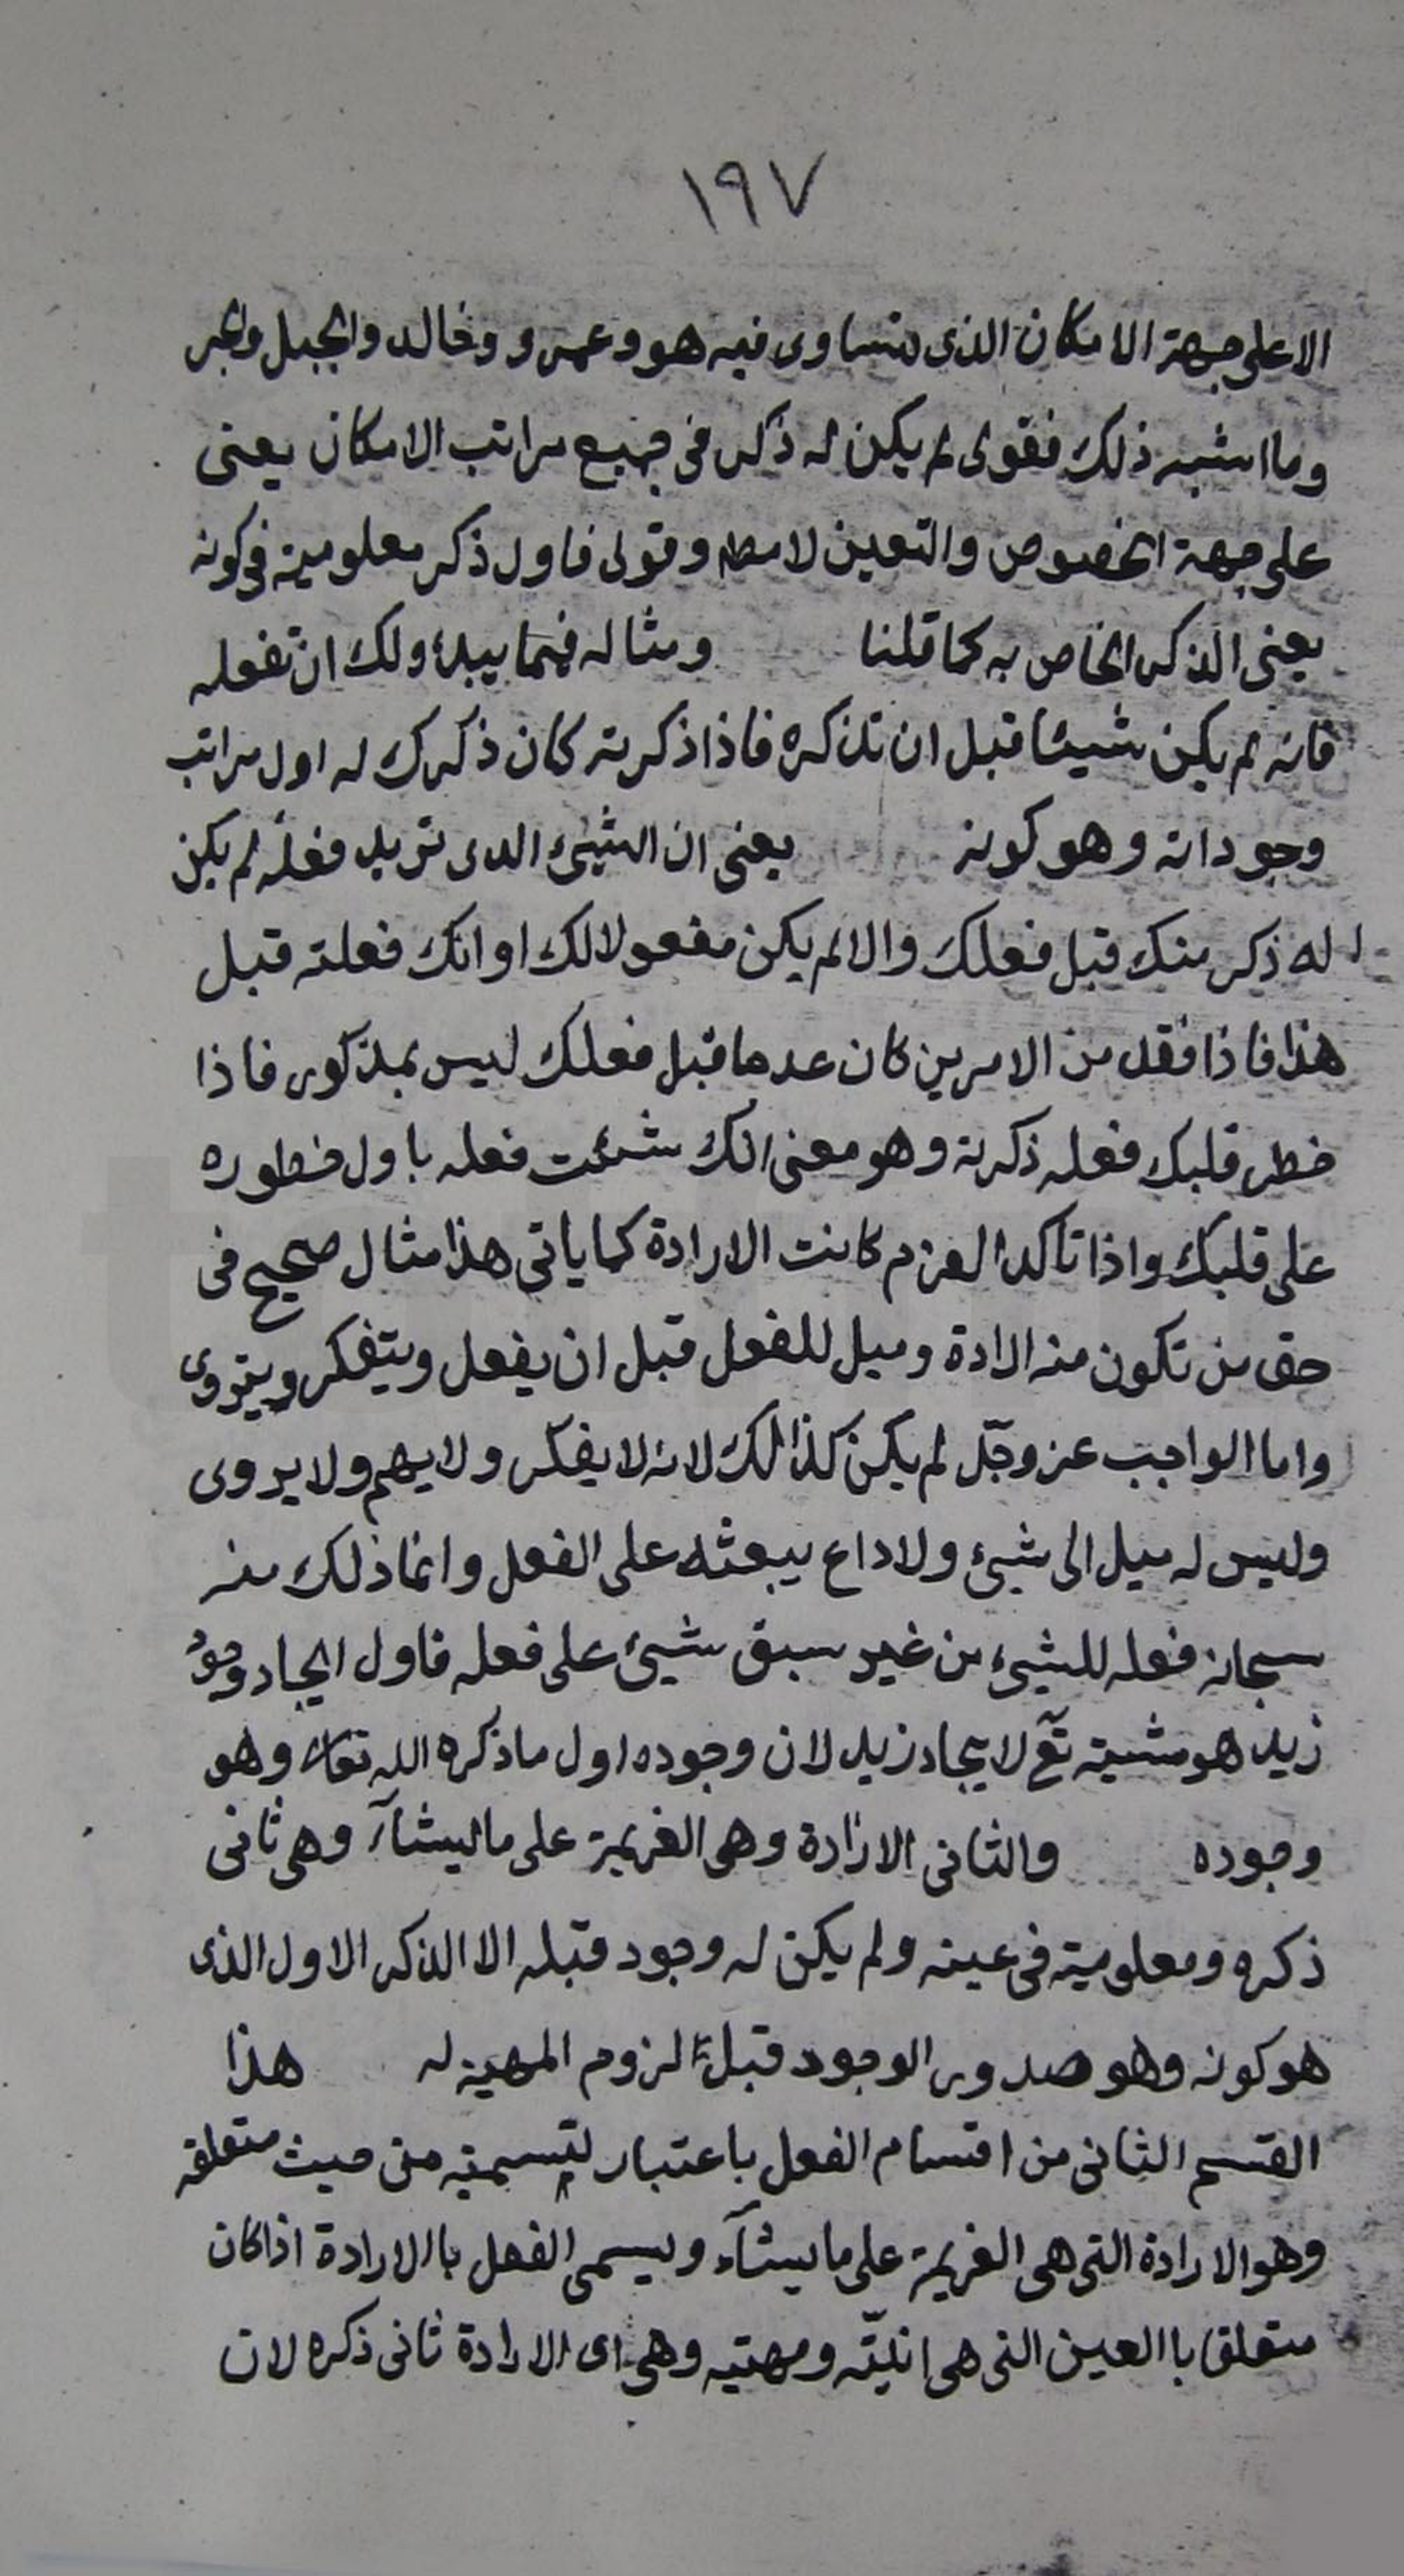 ١٩٧
الا على جهة الامكان الذى يتساوى فيه هو وعمرو وخالد والجبل والبحر
وما اشبه ذلك فقولى لم يكن له ذكر فى جميع مراتب الامكان يعنى
على جهة الخصوص والتعين لا مطلقا وقولى فاول ذكر معلوميته فى كونه
يعنى الذكر الخاص به كما قلنا ومثاله فيما يبدء ولك ان تفعله
فانه لم يكن شيئا قبل ان تذكره فاذا ذكرته كان ذكرك له اول مراتب
وجوداته وهو كونه يعنى ان الشيئ الذى تريد فعله لم يكن
له ذكر منك قبل فعلك والا لم يكن مفعولا لك او انك فعلته قبل
هذا فاذا فقد من الامرين كان عدما قبل فعلك ليس بمذكور فاذا
خطر قلبك فعله ذكرته وهو معنى انك شئت فعله باول خطوره
على قلبك واذا تاكد العزم كانت الارادة كما ياتى هذا مثال صحيح فى
حق من تكون منه الارادة وميل للفعل قبل ان يفعل ويتفكر ويتروى
واما الواجب عز وجل لم يكن كذالك لانه لا يفكر ولا يهم ولا يروى
وليس له ميل الى شيئ ولا داع يبعثه على الفعل وانما ذلك منه
سبحانه فعله للشيئ من غير سبق شيئ على فعله فاول ايجاد وجود
زيد هو مشيته تع لايجاد زيد لان وجوده اول ما ذكره الله تعالى وهو
وجوده والثانى الارادة وهى العزيمة على ما يشآء وهى ثانى
ذكره ومعلوميته فى عينه ولم يكن له وجود قبله الا الذكر الاول الذى
هو كونه وهو صدور الوجود قبل لزوم المهية له هذا
القسم الثانى من اقسام الفعل باعتبار تسميته من حيث متعلقه
وهو الارادة التى هى العزيمة على ما يشآء ويسمى الفعل باالارادة اذا كان
متعلق باالعين التى هى انيّته ومهيته وهى اى الارادة ثانى ذكره لان